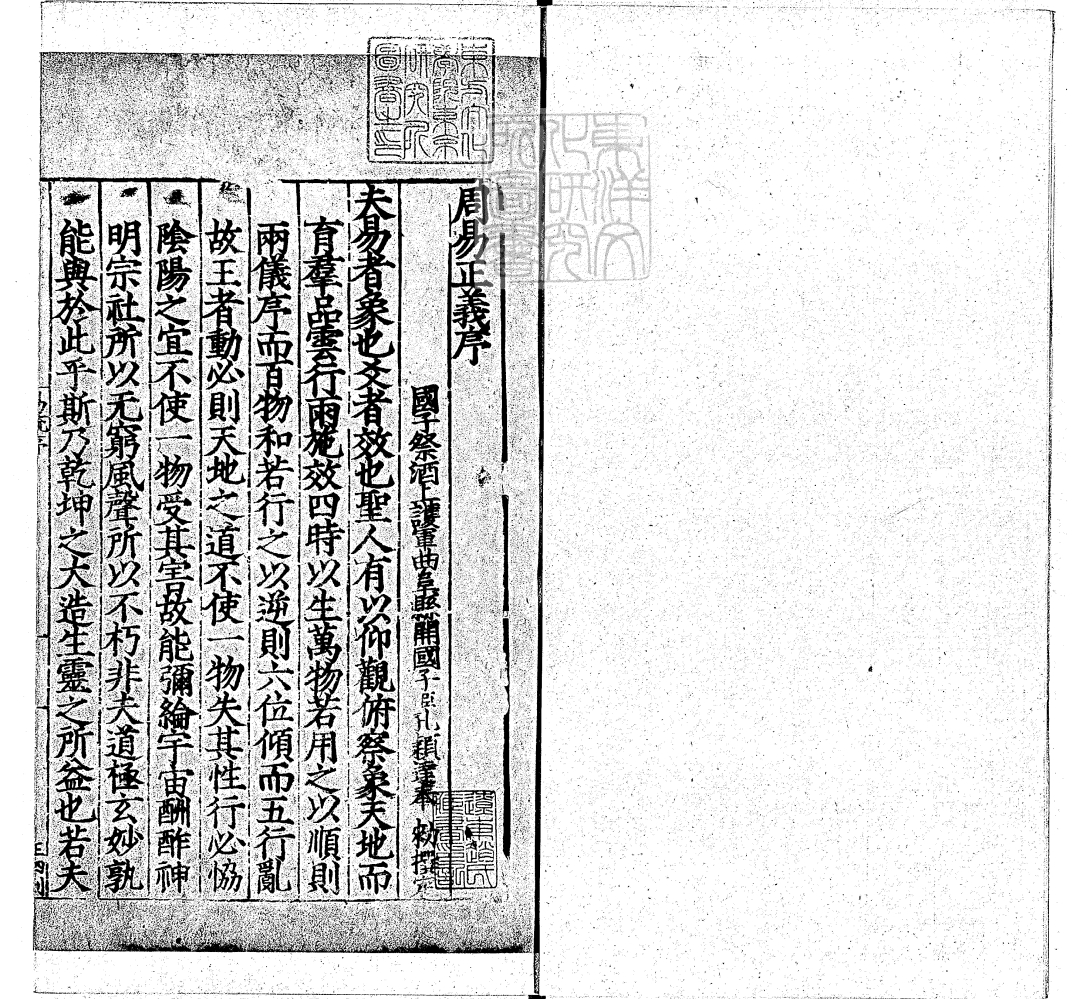 周易正義序
國子祭酒上護軍曲阜縣開國子臣孔穎達奉 勑撰定
夫易者象也爻者效也聖人有以仰觀俯察象天地而
育羣品雲行雨施效四時以生萬物若用之以順則
兩儀序而百物和若行之以逆則六位傾而五行亂
故王者動必則天地之道不使一物失其性行必恊
陰陽之宜不使一物受其害故能彌綸宇宙酬酢神
明宗社所以无窮風聲所以不朽非夫道極玄妙孰
能與於此乎斯乃乾坤之大造生靈之所益也若夫
東方文化
學院東京
研究所
圖書之印
東洋文
化研究
所圖書